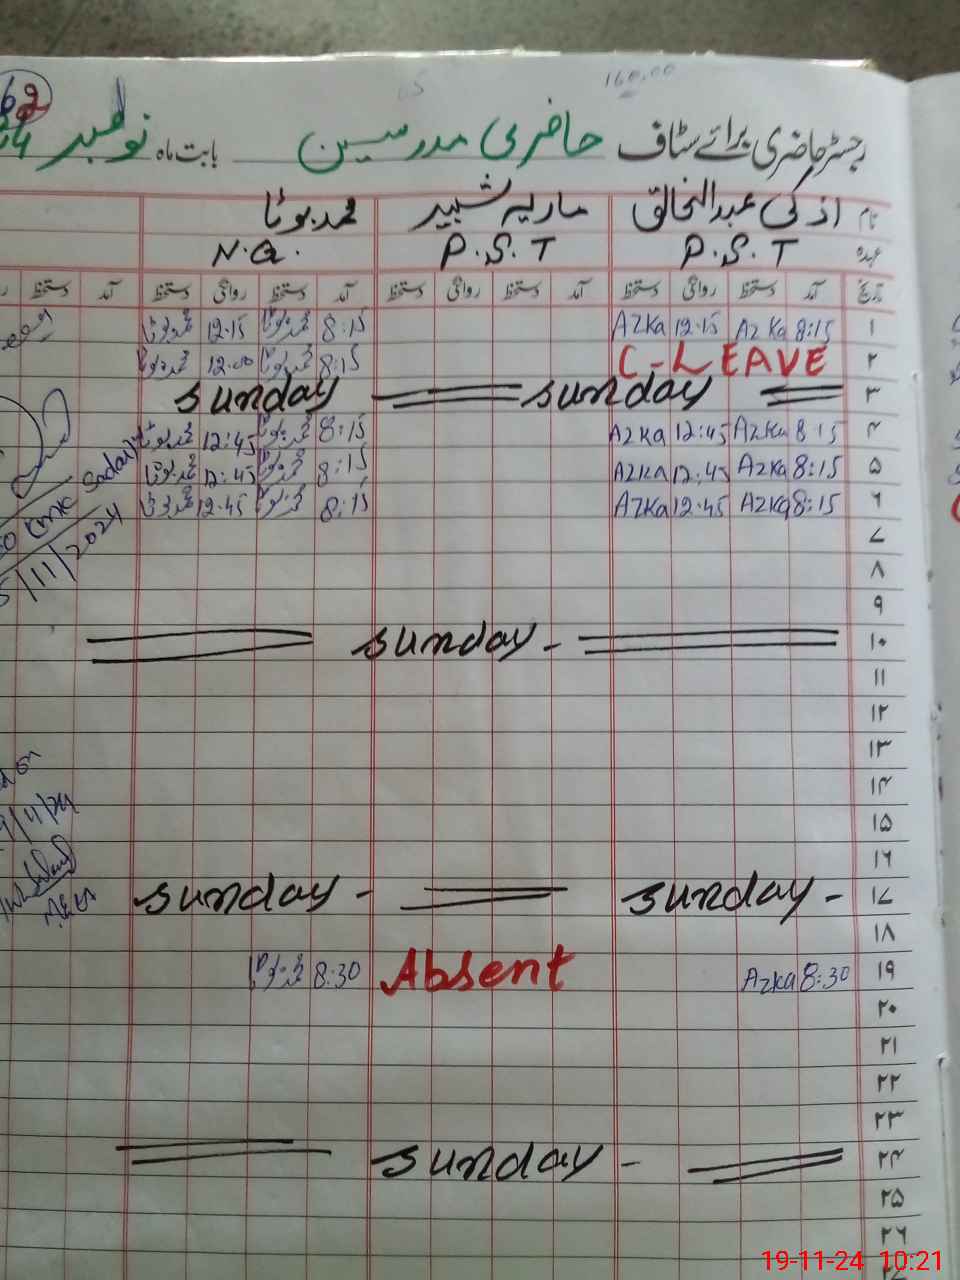 160.00
62
رجسٹر حاضری برائے سٹاف حاضری مدرسین بابت ماہ نومبر
نام اذکی عبدالخالق ماریہ شبیر محمد بوٹا
عہدہ P.S.T P.S.T N.Q.
تاریخ آمد دستخط روانگی دستخط آمد دستخط روانگی دستخط آمد دستخط روانگی دستخط آمد دستخط
۱ 8:15 Azka 12:15 Azka 8:15 محمد بوٹا 12:15 محمد بوٹا
۲ C-LEAVE 8:15 محمد بوٹا 12:00 محمد بوٹا
۳ sunday sunday
۴ 8:15 Azka 12:45 Azka 8:15 محمد بوٹا 12:45 محمد بوٹا
۵ 8:15 Azka 12:45 Azka 8:15 محمد بوٹا 12:45 محمد بوٹا
۶ 8:15 Azka 12:45 Azka 8:15 محمد بوٹا 12:45 محمد بوٹا
۷
۸
۹
۱۰ sunday -
۱۱
۱۲
۱۳
۱۴
۱۵
۱۶
۱۷ sunday - sunday -
۱۸
۱۹ 8:30 Azka Absent 8:30 محمد بوٹا
۲۰
۲۱
۲۲
۲۳
۲۴ sunday -
۲۵
۲۶
/11/2024
19-11-24 10:21